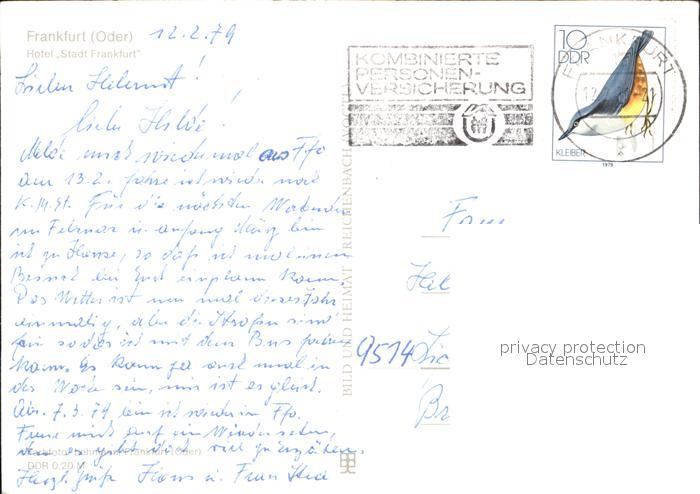 Frankfurt (Oder) 12.2.79
Hotel „Stadt Frankfurt"
Lieber Helmut!
Liebe Hilde!
Melde mich wieder mal aus Ffo
Am 13.2. fahre ich wieder nach
K.M.St. Für die nächsten
im Februar u. anfang März bin
ich zu Hause, so daß ich mal einen
Besuch bei Euch einplanen kann.
Das Wetter ist nun mal dieses Jahr
einmalig, aber die Straßen sind
so daß ich mit dem Bus fahren
kann. Es kann ja auch mal in
der Woche sein, mir ist es gleich.
Ab. 7.3.79 bin ich wieder in Ffo.
Freue mich auf ein Wiedersehen,
viel zu erzählen.
Herzl. Grüße Hans u. Frau
DDR 0,20 M
BILD UND HEIMAT REICHENBACH
KOMBINIERTE
PERSONEN-
VERSICHERUNG
FRANKFURT
10
DDR
KLEIBER
1979
Fam
Hel
9514
Br
privacy protection
Datenschutz